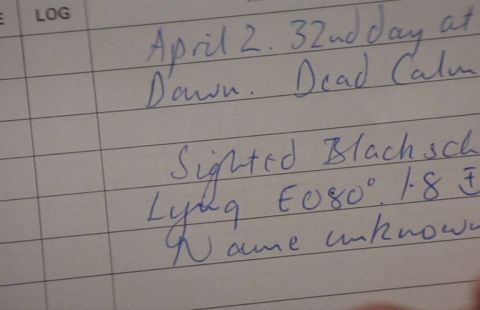 E LOG
April 2. 32nd day at
Dawn. Dead Calm
Sighted Black sch
Lying E080°. 1.8
Name unknown